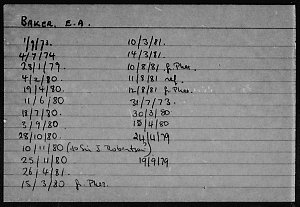 BAKER, E.A.
1/9/73.
4/7/74
23/1/79.
4/2/80.
19/4/80.
11/6/80
13/7/80.
3/9/80.
28/10/80.
10/11/80 (to Sir J. Robertson)
25/11/80
26/4/81.
15/3/80 f. Phes.
10/3/81.
14/3/81.
10/8/81 f. Phes.
11/8/81 ref.
12/8/81 f. Phes.
31/7/73.
30/3/80
15/4/80
24/4/79
19/9/79